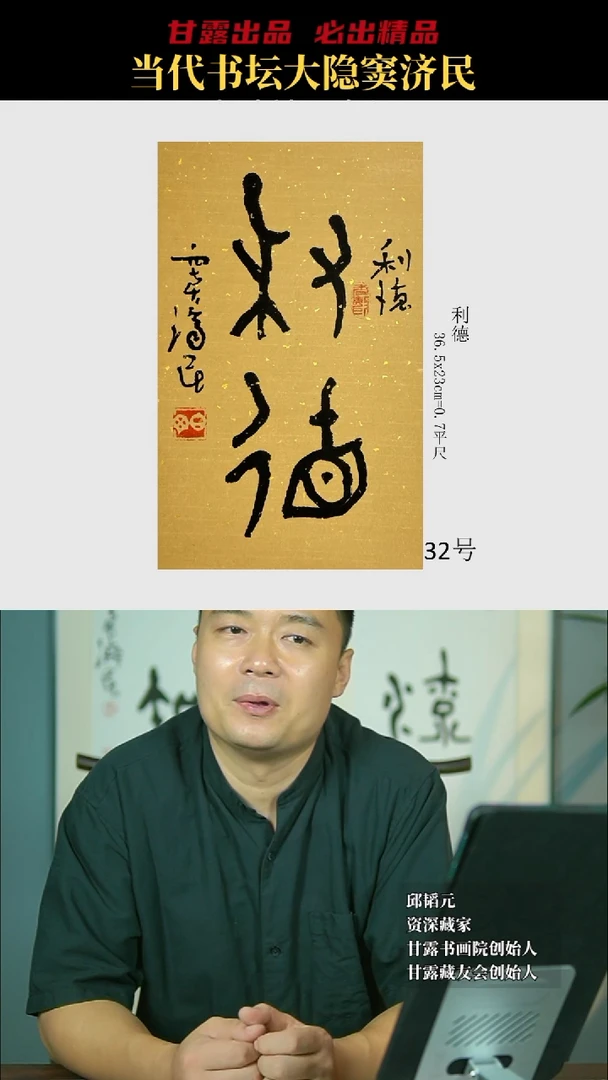 甘露出品 必出精品
当代书坛大隐窦济民
利德
利德
窦济民
利德
36.5x23cm=0.7平尺
32号
邱韬元
资深藏家
甘露书画院创始人
甘露藏友会创始人